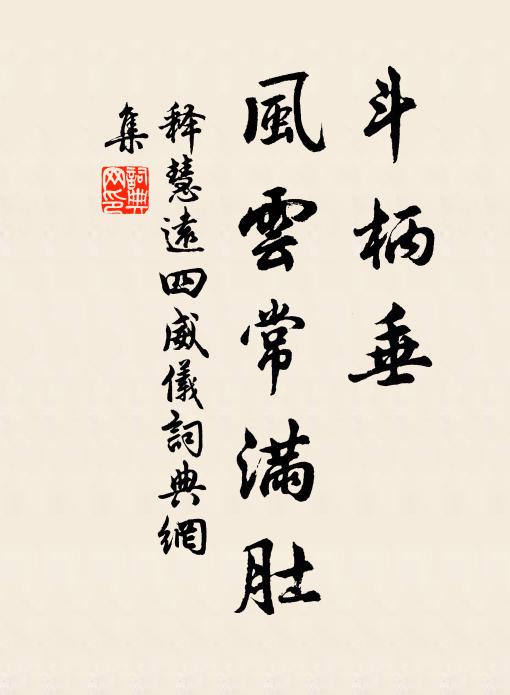 斗柄垂
風雲常滿肚
释慧遠四威儀詞典網
集
詞典
网印